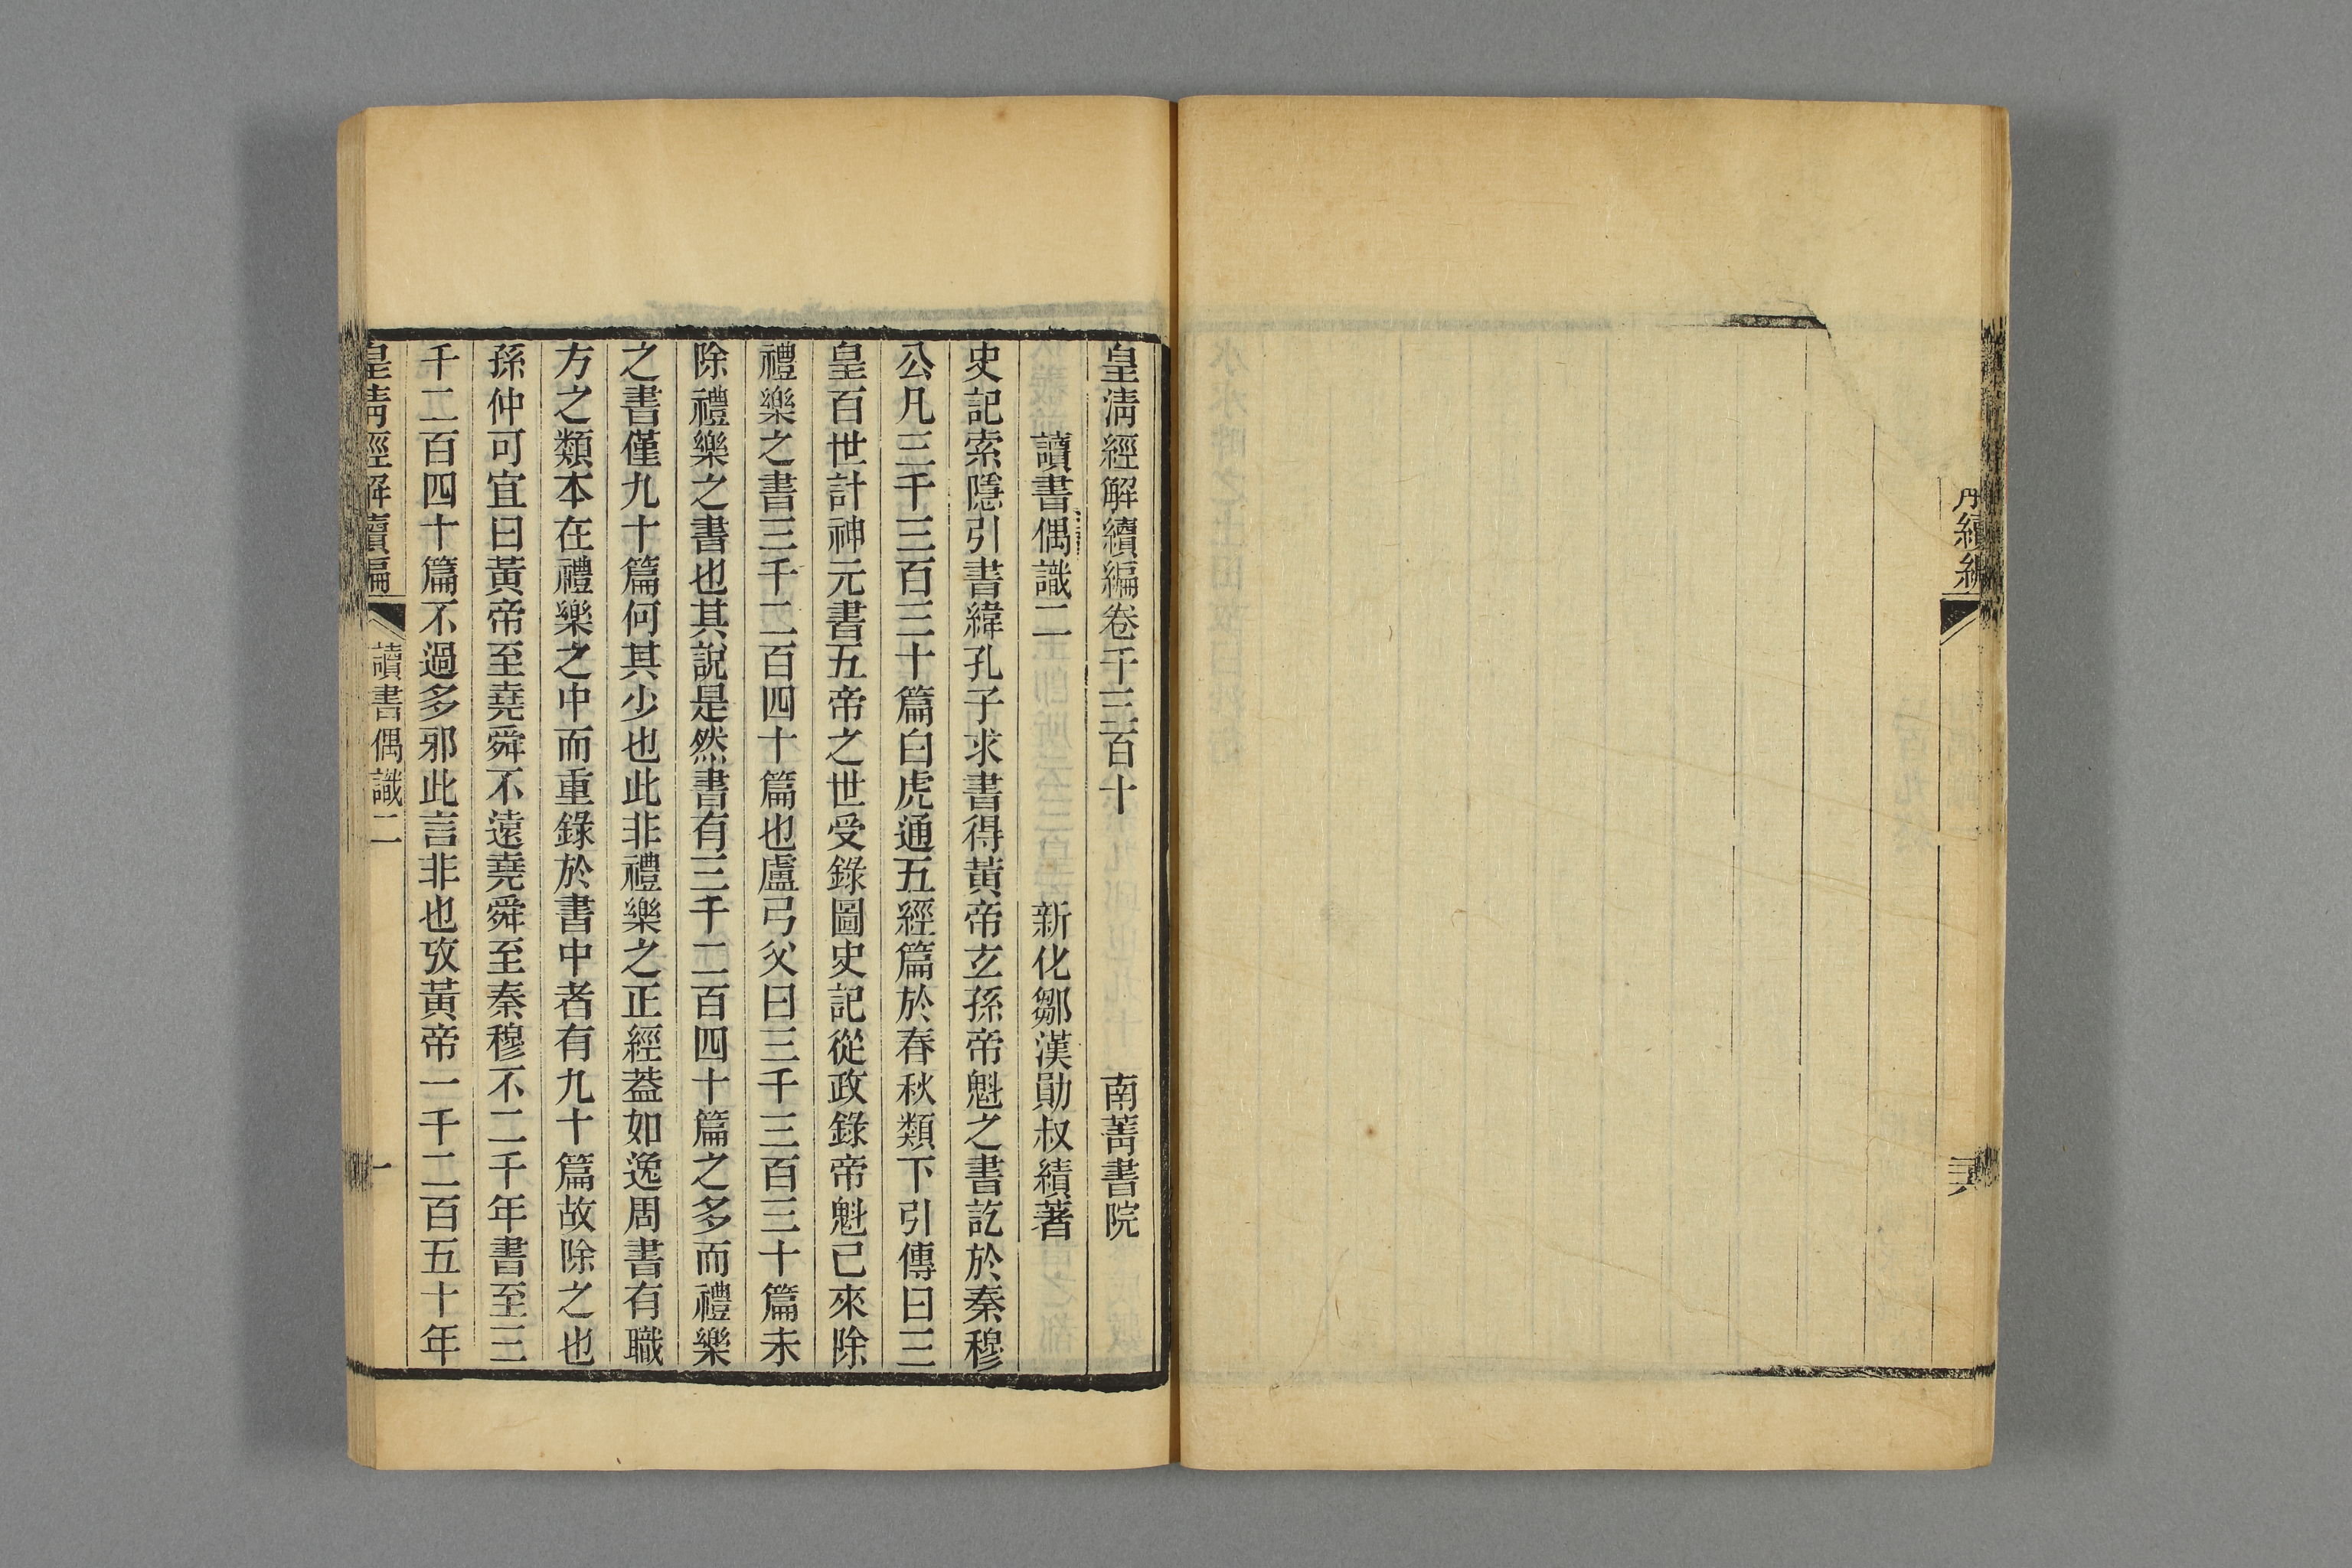 續編
皇清經解續編卷千三百十　南菁書院
讀書偶識二　新化鄒漢勛叔績著
史記索隱引書緯孔子求書得黃帝玄孫帝魁之書訖於秦穆
公凡三千三百三十篇白虎通五經篇於春秋類下引傳曰三
皇百世計神元書五帝之世受錄圖史記從政錄帝魁已來除
禮樂之書三千二百四十篇也盧弓父曰三千三百三十篇未
除禮樂之書也其說是然書有三千二百四十篇之多而禮樂
之書僅九十篇何其少也此非禮樂之正經葢如逸周書有職
方之類本在禮樂之中而重錄於書中者有九十篇故除之也
孫仲可宜曰黃帝至堯舜不遠堯舜至秦穆不二千年書至三
千二百四十篇不過多邪此言非也攷黃帝一千二百五十年
皇清經解續編　讀書偶識二　一